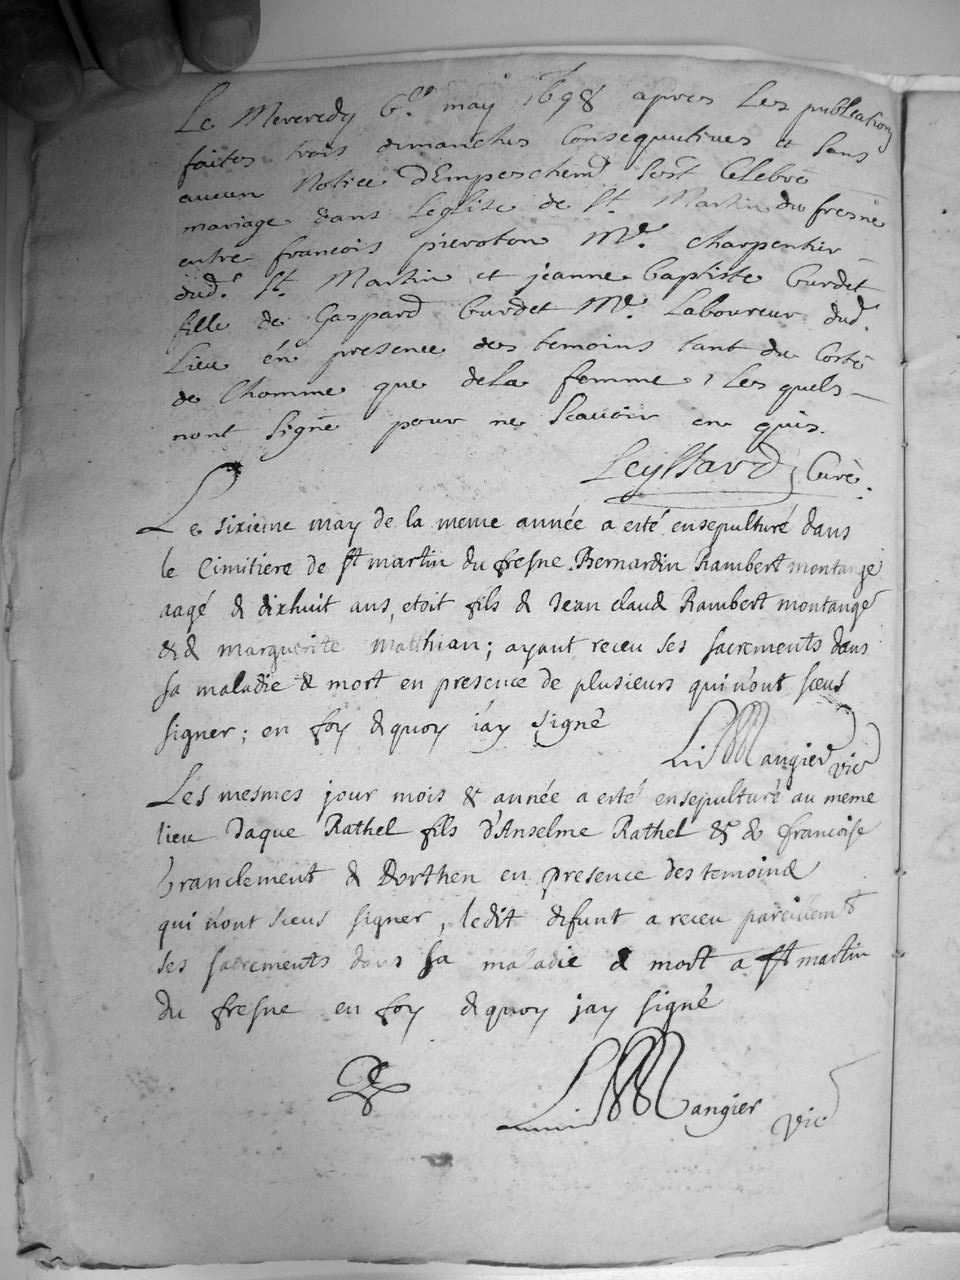 Le Mereredy 6.e may 1698 apres Les publications
faites trois dimanches Consequutives et sans
aucun Notice d'Empeschem.t s'est Celebré
mariage dans Leglise de St. Martin du fresne
entre francois pieroton M.e charpentier
dud.t St. Martin et jeanne baptiste burdet
fille de Gaspard burdet M.e Laboureur dud.t
Lieu én presence des temoins tant du Costé
de lhomme que dela femme, Les quels
nont signé pour ne scavoir en quis.
Leyssard Curé.
Le sixieme may de la meme année a esté ensepulturé dans
le Cimitiere de st martin du fresne Bernardin Rambert montange
aagé de dixhuit ans, etoit fils de Jean claud Rambert montange
& de marguerite Matthian; ayant receu ses sacrements dans
sa maladie & mort en presence de plusieurs qui n'ont sceus
signer; en foy dequoy i'ay signé
Mangier vic
Les mesmes jour mois & année a esté ensepulturé au meme
lieu Jaque Rathel fils d'Anselme Rathel & de francoise
branclement de Dorthen en presence des temoins
qui n'ont sceus signer, ledit difunt a receu pareillemt
ses sacrements dans sa maladie & mort a st martin
du fresne en foy dequoy jay signé
Mangier vic